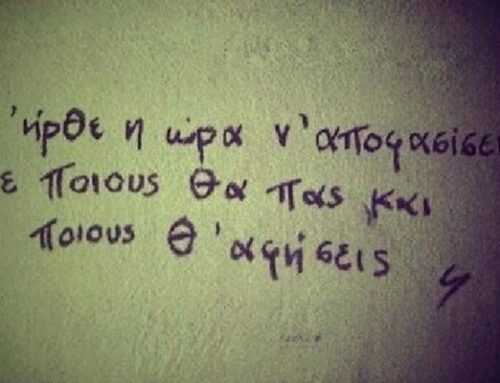 'ήρθε η ώρα ν'αποφασίσει
ε ποιους θα πας και
ποιους θ'αφήσεις